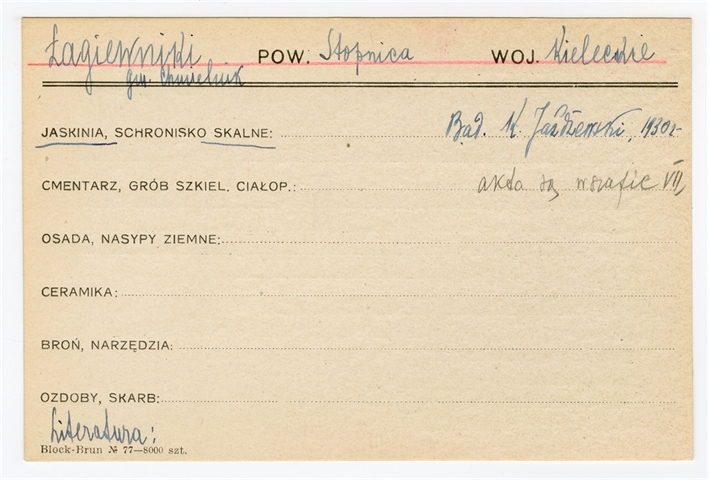 Łagiewniki POW. Stopnica WOJ. Kieleckie
gm. Chmielnik
JASKINIA, SCHRONISKO SKALNE: Bad. K. Jażdżewski, 1930 r.
CMENTARZ, GRÓB SZKIEL. CIAŁOP.: akta są w szafie VII
OSADA, NASYPY ZIEMNE:
CERAMIKA:
BROŃ, NARZĘDZIA:
OZDOBY, SKARB:
Literatura:
Block-Brun № 77—8000 szt.